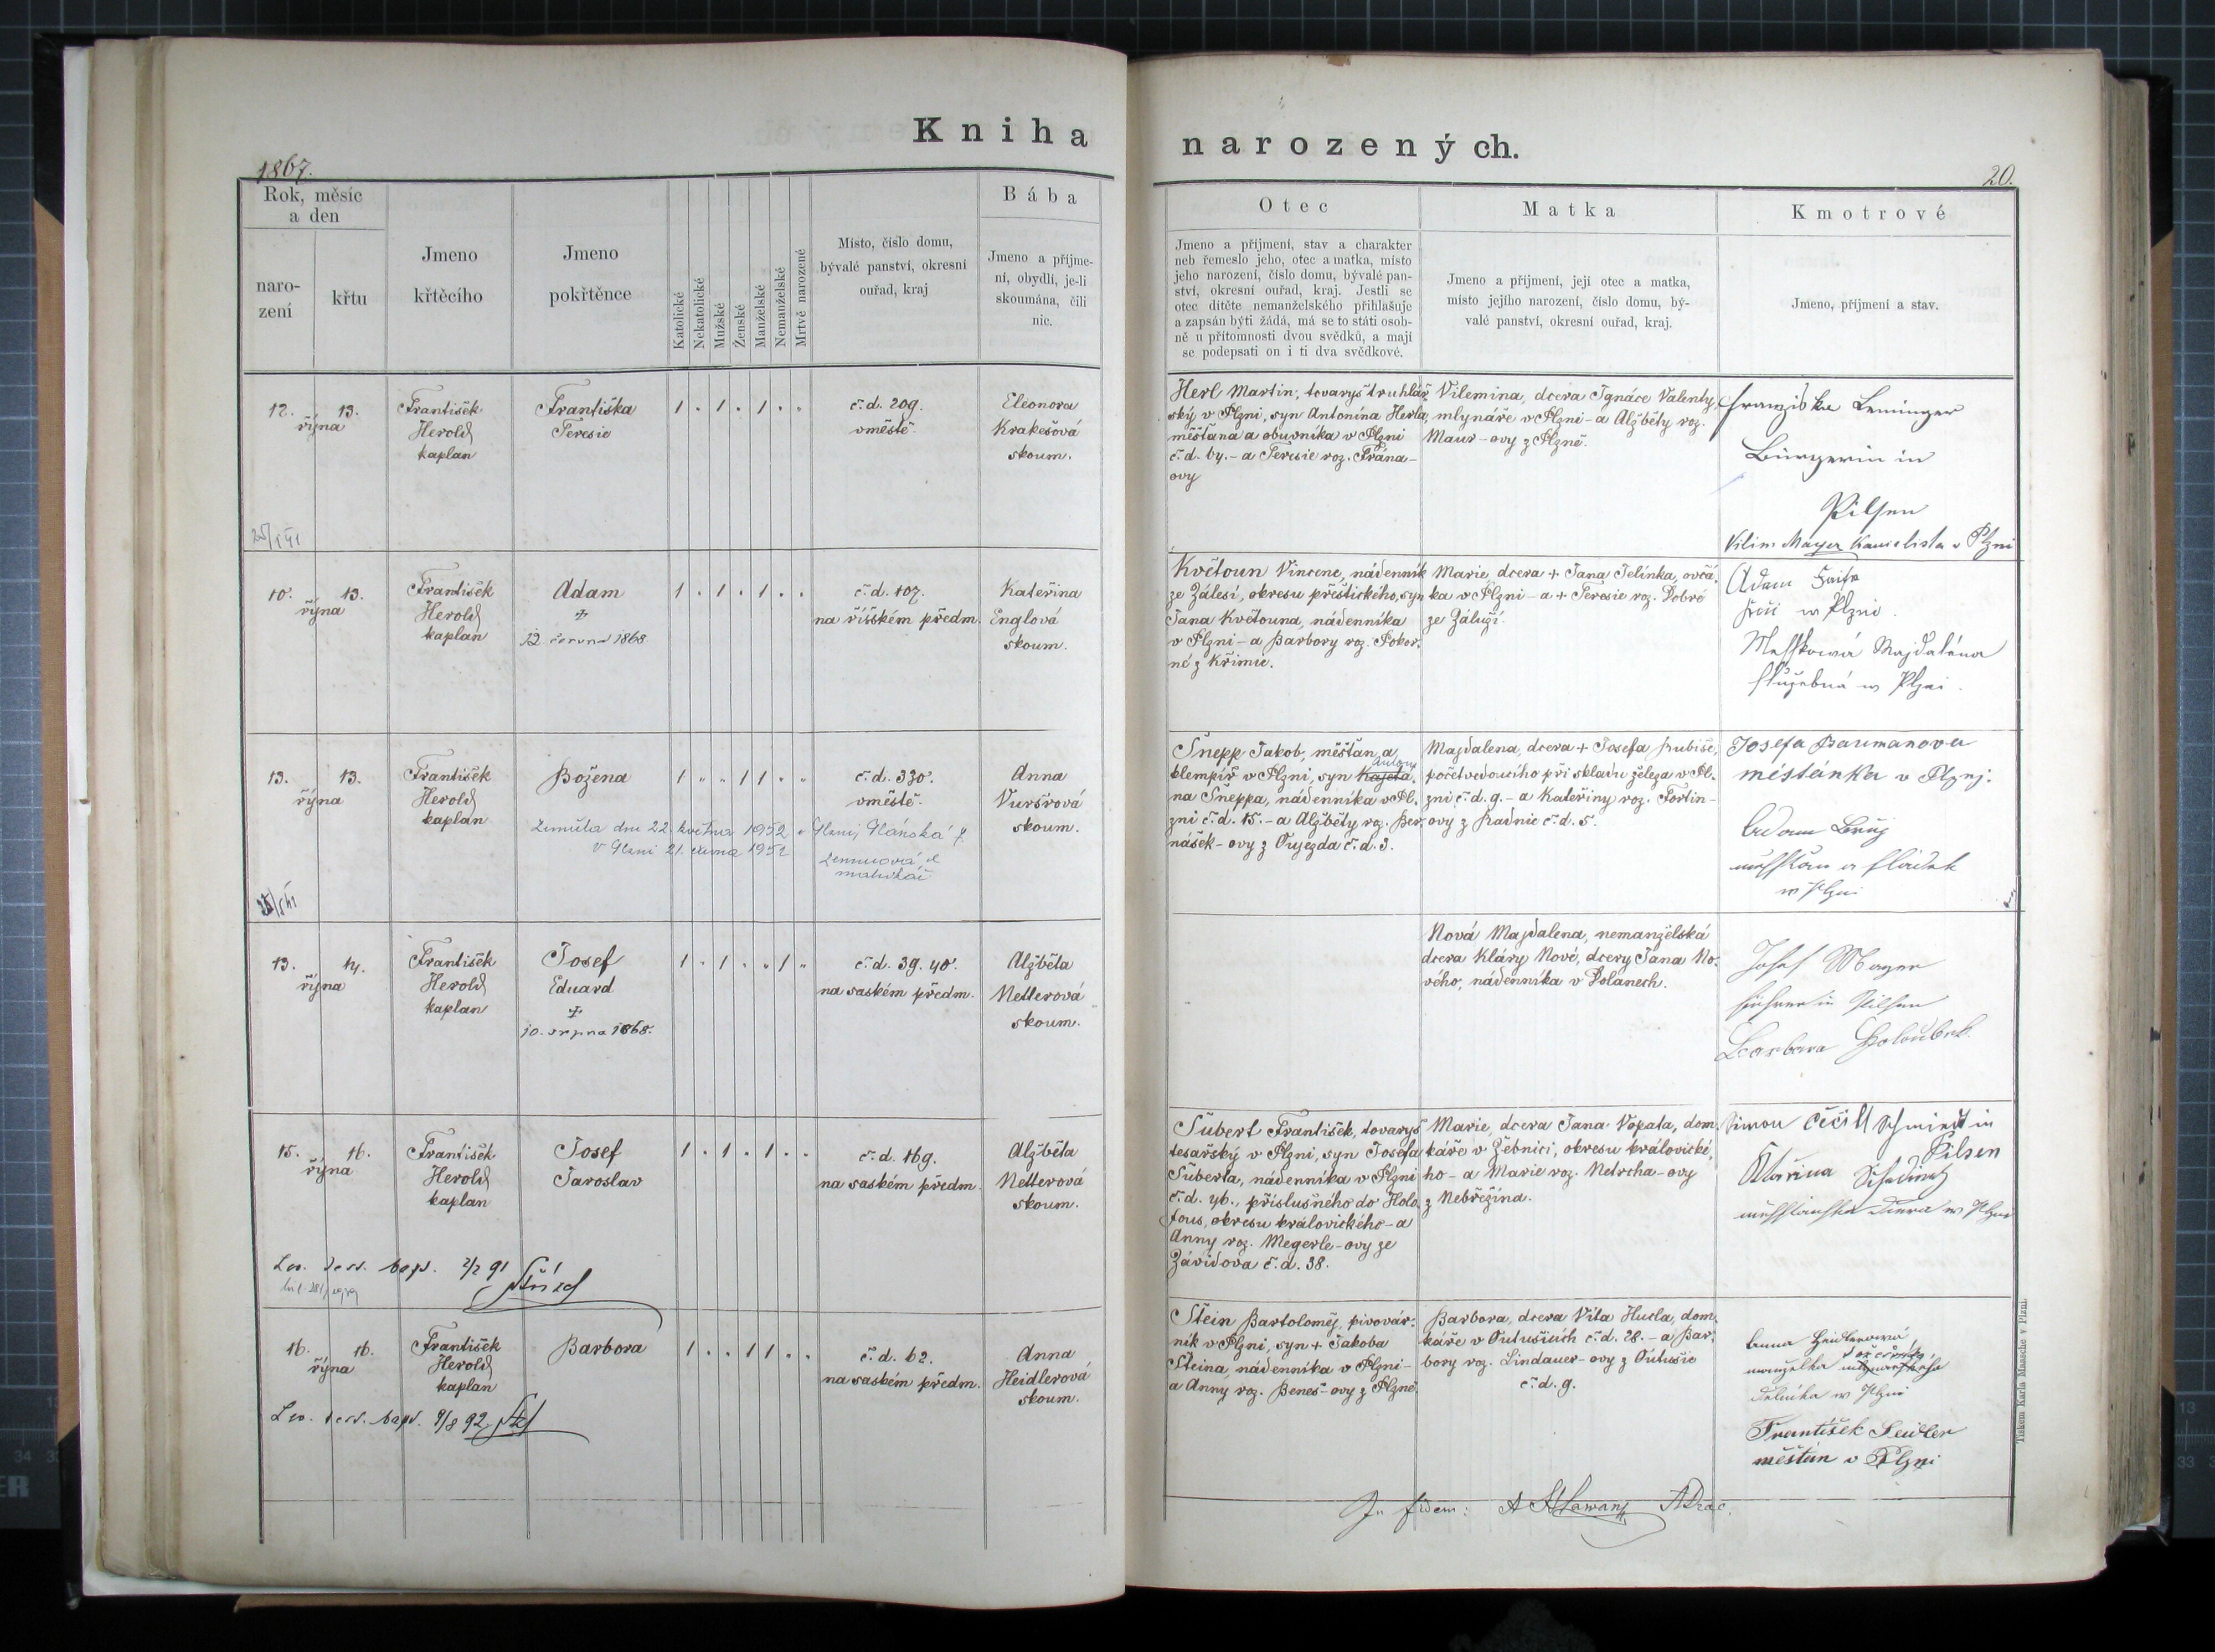 Kniha
narozených.
1867.
20.
Rok, měsíc
a den
naro-
zení
křtu
Jmeno
křtěcího
Jmeno
pokřtěnce
Katolické
Nekatolické
Mužské
Ženské
Manželské
Nemanželské
Mrtvě narozené
Místo, číslo domu,
bývalé panství, okresní
ouřad, kraj
Bába
Jmeno a příjme-
ní, obydlí, je-li
skoumána, čili
nic.
Otec
Jmeno a příjmení, stav a charakter
neb řemeslo jeho, otec a matka, místo
jeho narození, číslo domu, bývalé pan-
ství, okresní ouřad, kraj. Jestli se
otec dítěte nemanželského přihlašuje
a zapsán býti žádá, má se to státi osob-
ně u přítomnosti dvou svědků, a mají
se podepsati on i ti dva svědkové.
Matka
Jmeno a příjmení, její otec a matka,
místo jejího narození, číslo domu, bý-
valé panství, okresní ouřad, kraj.
Kmotrové
Jmeno, příjmení a stav.
12. 13.
října
František
Herold
kaplan
Františka
Teresie
1 . 1 . 1 . .
č. d. 209.
v městě.
Eleonora
Krakešová
skoum.
Herl Martin, tovaryš truhlář-
ský v Plzni, syn Antonína Herla,
měšťana a obuvníka v Plzni
č. d. 67. - a Teresie roz. Frána-
ovy
Vilemina, dcera Ignáce Valenty,
mlynáře v Plzni - a Alžběty roz.
Maur-ovy z Plzně.
Franziska Leminger
Bürgerin in
Pilsen
Vilím Mayer Kancelista v Plzni
10. 13.
října
František
Herold
kaplan
Adam
‡
12 června 1868
1 . 1 . 1 . .
č. d. 107.
na říšském předm.
Kateřina
Englová
skoum.
Květoun Vincenc, nádenník
ze Zálesí, okresu přeštického, syn
Jana Květouna, nádenníka
v Plzni - a Barbory roz. Pokor-
né z Křimic.
Marie, dcera + Jana Jelínka, ovčá-
ka v Plzni - a + Teresie roz. Dobré
ze Záluží.
Adam
w Plzni.
Majdaléna
služebná w Plzni.
13. 13.
října
František
Herold
kaplan
Božena
1 " " 1 1 " "
č. d. 330.
v městě.
Anna
Vuršrová
skoum.
Zemřela dne 22. května 1952 v Plzni, Plánská 7.
V Plzni 21. června 1952
matrikář
Šnepp Jakob, měšťan a
klempíř v Plzni, syn Kajetá-
Antony
na Šneppa, nádenníka v Pl-
zni č. d. 15. - a Alžběty roz. Ber-
nášek-ovy z Oujezda č. d. 3.
Majdalena, dcera + Josefa Kubiše,
početvedoucího při skladu železa v Pl-
zni č. d. 9. - a Kateřiny roz. Fortin-
ovy z Radnic č. d. 5.
Josefa Baumanova
měštěnka v Plznj.
Adam
a sládek
w Plzni
13. 14.
října
František
Herold
kaplan
Josef
Eduard
‡
10. srpna 1868.
1 . 1 . " 1 "
č. d. 39. 40.
na saském předm.
Alžběta
Netterová
skoum.
Nová Majdalena, nemanželská
dcera Kláry Nové, dcery Jana No-
vého, nádenníka v Dolanech.
Josef Mayer
in Pilsen
Barbara Holoubek
15. 16.
října
František
Herold
kaplan
Josef
Jaroslav
1 . 1 . 1 . .
č. d. 169.
na saském předm.
Alžběta
Netterová
skoum.
Šubert František, tovaryš
tesařský v Plzni, syn Josefa
Šuberta, nádenníka v Plzni
č. d. 46., příslušného do Holo-
fous, okresu královického - a
Anny roz. Megerle-ovy ze
Závidova č. d. 38.
Marie, dcera Jana Vopata, dom-
káře v Žebnici, okresu královické-
ho - a Marie roz. Netrcha-ovy
z Nebřezína.
Simon Čečil Schmiedt in
Pilsen
dcera w Plzni
16. 16.
října
František
Herold
kaplan
Barbora
1 . . 1 1 . .
č. d. 62.
na saském předm.
Anna
Heidlerová
skoum.
Stein Bartoloměj, pivovár-
ník v Plzni, syn + Jakoba
Steina, nádenníka v Plzni -
a Anny roz. Beneš-ovy z Plzně.
Barbora, dcera Víta Hucla, dom-
káře v Outušicích č. d. 28. - a Bar-
bory roz. Lindauer-ovy z Outušic
č. d. 9.
Anna Heidlerowá
manželka
dělníka w Plzni
František Seidler
měštan v Plzni
In fidem:
Tiskem Karla Maasche v Plzni.